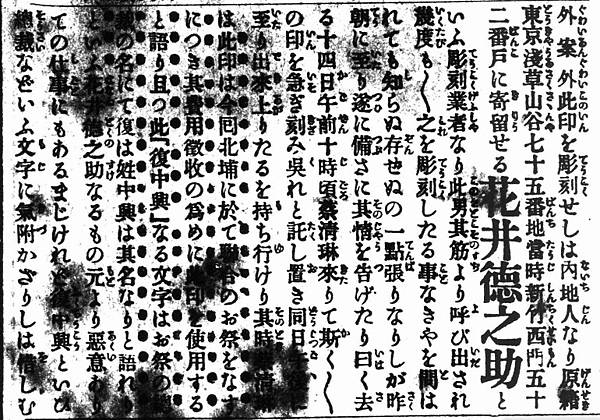 外案外此印を彫刻せしは内地人なり原籍
東京淺草山谷七十五番地當時新竹西門五十
二番戸に寄留せる花井德之助と
いふ彫刻業者なり此男其筋より呼び出され
幾度も〱之を彫刻したる事なきやを問は
れても知らぬ存せぬの一點張りなりしが昨
朝に至り遂に備さに其情を告げたり曰く去
る十四日午前十時頃蔡清琳來りて斯く〱
の印を急ぎ刻み吳れと託し置き同日
至り出來上りたるを持ち行けり其時蔡清琳
は此印は今回北埔に於て聯合のお祭をなす
につき其費用徵收の爲めに此印を使用する
と語り且つ此『復中興』なる文字はお祭の總
裁の名にて復は姓中興は其名なりと語れり
といふ花井德之助なるもの元より惡意あり
ての仕事にもあるまじけれど復中興といひ
總裁などいふ文字に氣附かざりしは惜しむ